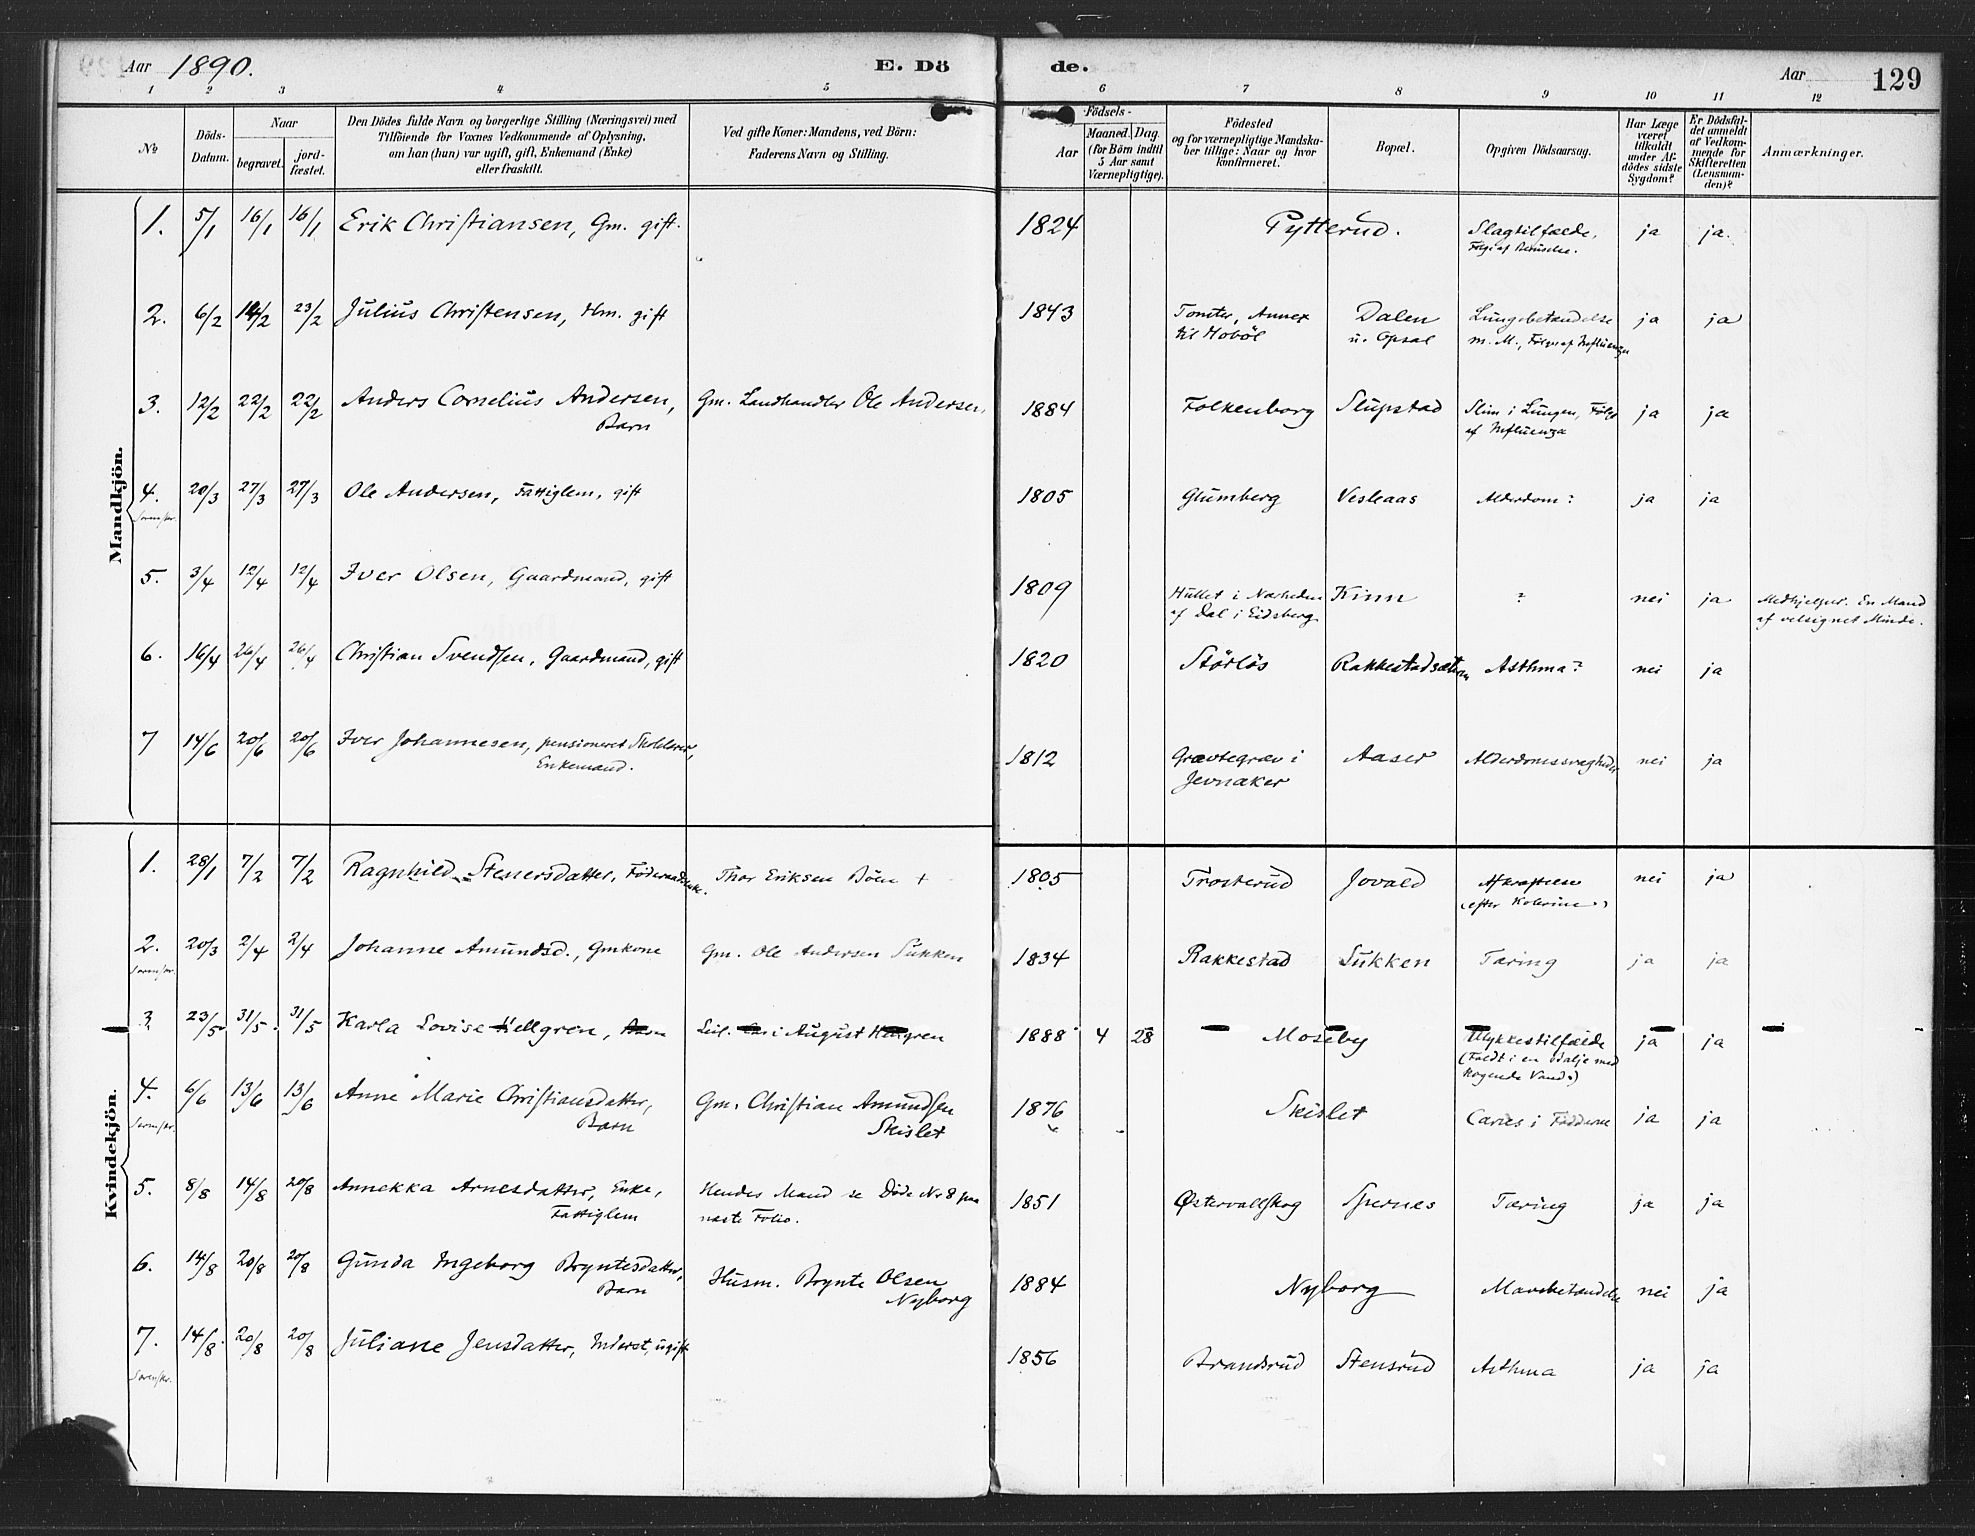 Aar 1890. E. Dö de. Aar 129
1 2 3 4 5 6 7 8 9 10 11 12
№
Döds-Datum.
Naar
begravet.
jord-fæstet.
Den Dödes fulde Navn og borgerlige Stilling (Næringsvei) med
Tilföiende for Voxnes Vedkommende af Oplysning,
om han (hun) var ugift, gift, Enkemand (Enke)
eller fraskilt.
Ved gifte Koner: Mandens, ved Börn:
Faderens Navn og Stilling.
Födsels-
Aar
Maaned. Dag.
(for Börn indtil
5 Aar samt
Værnepligtige).
Födested
og for værnepligtige Mandska-
ber tillige: Naar og hvor
konfirmeret.
Bopæl.
Opgiven Dödsaarsag.
Har Læge
været
tilkaldt
under Af-
dödes sidste
Sygdom?
Er Dödsfal-
det anmeldt
af Vedkom-
mende for
Skifteretten
(Lensman-
den)?
Anmærkninger.
Mandkjön.
1. 5/1 16/1 16/1 Erik Christiansen, Gm. gift. 1824 Pytterud. Slagtilfælde, ja ja.
Følge af Beruselse.
2. 6/2 14/2 23/2 Julius Christensen, Hm. gift 1843 Tomter, Annex Dalen Lungebetændelse ja ja
til Hobøl u. Opsal m. M., Følge af Influenza
3. 12/2 22/2 22/2 Anders Cornelius Andersen, Gm. Landhandler Ole Andersen, 1884 Folkenborg Slupstad Slim i Lungen, Følge ja ja
Barn af Influenza
4. 20/3 27/3 27/3 Ole Andersen, Fattiglem, gift 1805 Glumberg Vesleaas Alderdom? ja ja
5. 3/4 12/4 12/4 Iver Olsen, Gaardmand, gift 1809 Hullet i Nærheden Kinn ? nei ja Medhjelper. En Mand
af Dal i Eidsberg af velsignet Minde.
6. 16/4 26/4 26/4 Christian Svendsen, Gaardmand, gift 1820 Störlös Asthma? nei ja
7 14/6 20/6 20/6 Iver Johannesen, pensioneret Skolelærer, 1812 Grævtegrav i Aaser Alderdomssvaghed nei ja
Enkemand. Jevnaker
Kvindekjön.
1. 28/1 7/2 7/2 Ragnhild Stenersdatter, Føderaadsenke. Thor Eriksen Böen + 1805 Trosterud Jovald Afkræftelse nei ja
(efter Kolerine.)
2. 20/3 2/4 2/4 Johanne Amundsd., Gmkone Gm. Ole Andersen Sukken 1834 Rakkestad Sukken Tæring ja ja
3 23/5 31/5 31/5 Karla Lovise Hellgren, Barn August Hellgren 1888 4 28 Moseby Ulykkestilfælde ja ja
(Faldt i en Balje med
kogende Vand.)
4. 6/6 13/6 13/6 Anne Marie Christiansdatter, Gm. Christian Amundsen 1876 Skislet Caries i Fødderne ja ja
Barn Skislet
5. 8/8 14/8 20/8 Annekka Arnesdatter, Enke, Hendes Mand se Døde Nr 8 paa 1851 Østervallskog Spernes Tæring ja ja
Fattiglem næste Folio.
6. 14/8 20/8 20/8 Gunda Ingeborg Bryntesdatter, Husm. Brynte Olsen 1884 Nyborg Mavebetændelse nei ja
Barn Nyborg
7. 14/8 20/8 20/8 Juliane Jensdatter, Inderst, ugift 1856 Brandsrud Stensrud Asthma ja ja